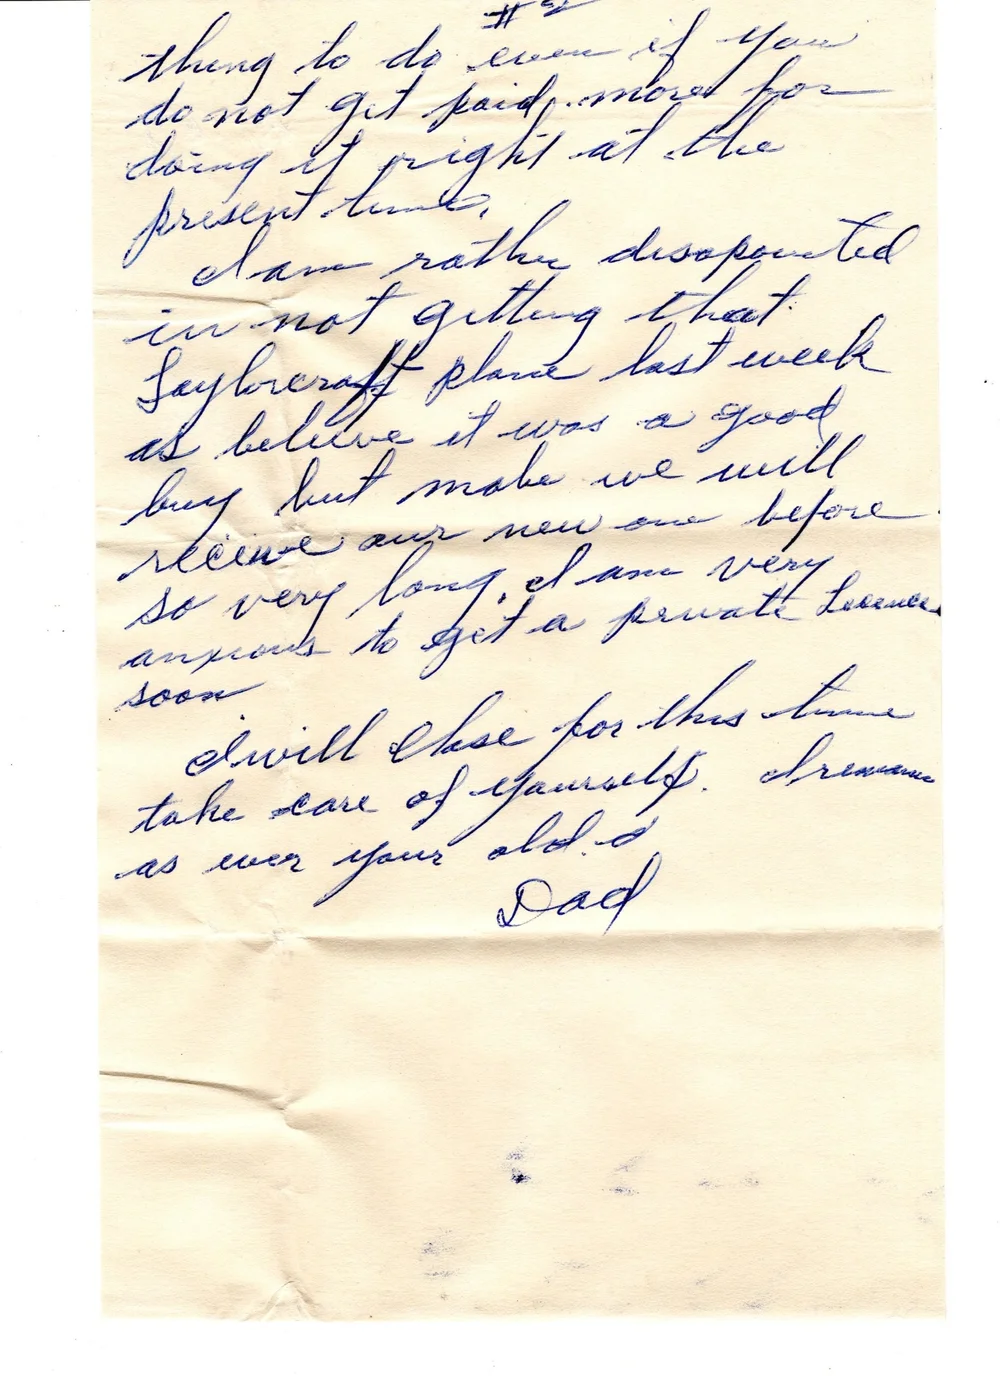 #2
thing to do even if you
do not get paid more for
doing it right at the
present time.
I am rather disapointed
in not getting that
Taylorcraft plane last week
as beleive it was a good
buy but mabe we will
receive our new one before
so very long. I am very
anxious to get a private Licence
soon
I will Close for this time
take care of yourself. I remain
as ever your old
Dad